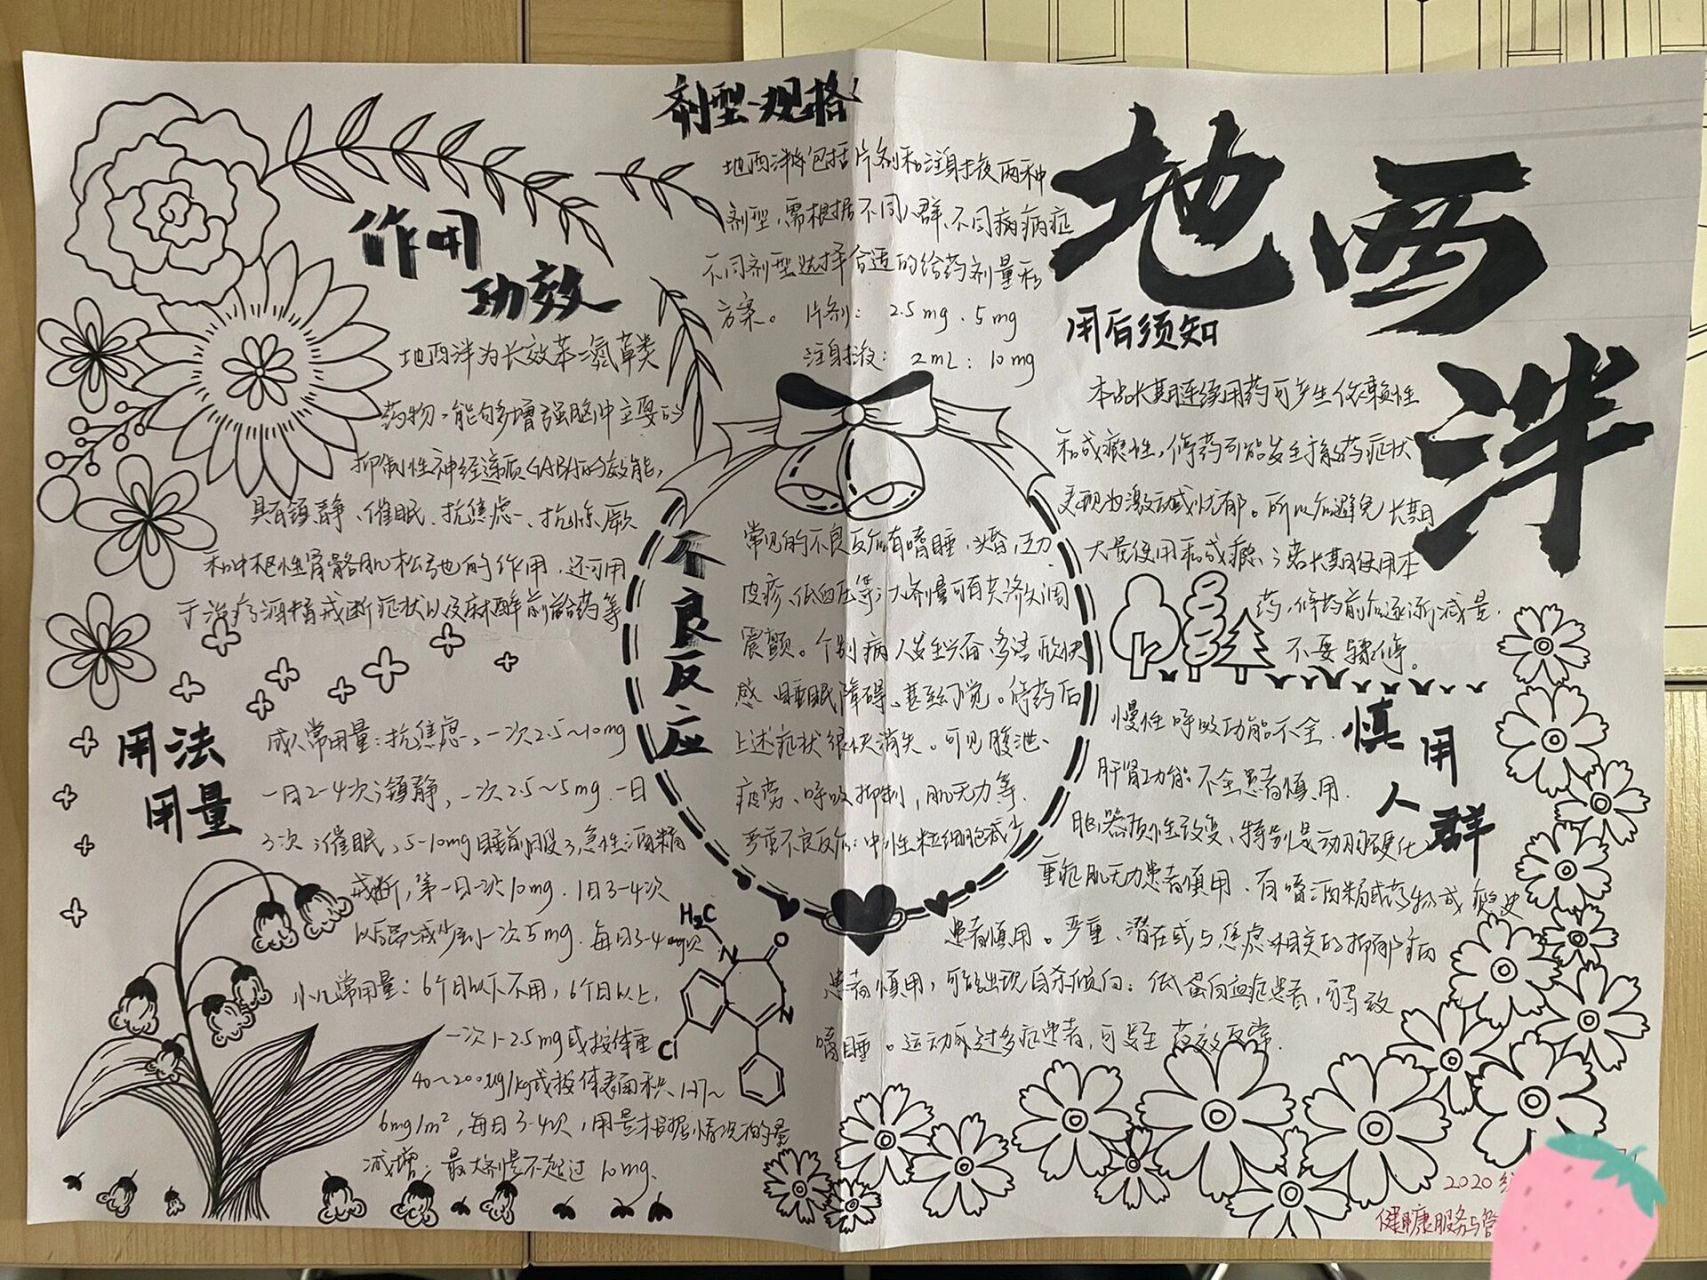 地西泮
剂型·规格
地西泮包括片剂和注射液两种
剂型,需根据不同人群、不同病病症
不同剂型选择合适的给药剂量和
方案。 片剂: 2.5mg、5mg
注射液: 2mL:10mg
作用
功效
地西泮为长效苯二氮䓬类
药物,能够增强脑中主要的
抑制性神经递质GABA的效能,
具有镇静、催眠、抗焦虑、抗惊厥
和中枢性骨骼肌松弛的作用,还可用
于治疗酒精戒断症状以及麻醉前给药等
用法
用量
成人常用量:抗焦虑,一次2.5~10mg
一日2-4次;镇静,一次2.5~5mg、一日
3次;催眠,5-10mg睡前服;急性酒精
戒断,第一日一次10mg,1日3-4次
以后 减少到一次5mg、每日3-4 次
小儿常用量:6个月以下不用,6个月以上,
一次1-2.5mg或按体重
40~200μg/kg或按体表面积1.17~
6mg/m²,每日3-4次,用量根据情况酌量
减增;最大剂量不超过10mg.
H₃C
N
O
N
Cl
不良反应
常见的不良反应有嗜睡,头昏,乏力
皮疹、低血压等;大剂量可有共济失调
震颤。个别病人发生兴奋、多语
感、睡眠障碍、甚至幻觉。停药后
上述症状很快消失。可见腹泄、
疲劳、呼吸抑制,肌无力等.
严重不良反应:中性粒细胞减少
用后须知
本品长期连续用药可产生依赖性
和成瘾性,停药可能发生撤药症状
表现为激动或忧郁。所以应避免长期
大量使用和成瘾;若长期使用本
药,停药前应逐渐减量,
不要骤停。
慎用
人群
慢性呼吸功能不全、
肝肾功能不全患者慎用.
脑器质性改变、特别是动脉硬化
重症肌无力患者慎用、有嗜酒精或药物成瘾史
患者慎用。严重、潜在或与焦虑相关的抑郁病
患者慎用,可能出现自杀倾向;低蛋白血症患者,易致
嗜睡。运动 过多症患者,可导至药效反常.
2020
健康服务与管